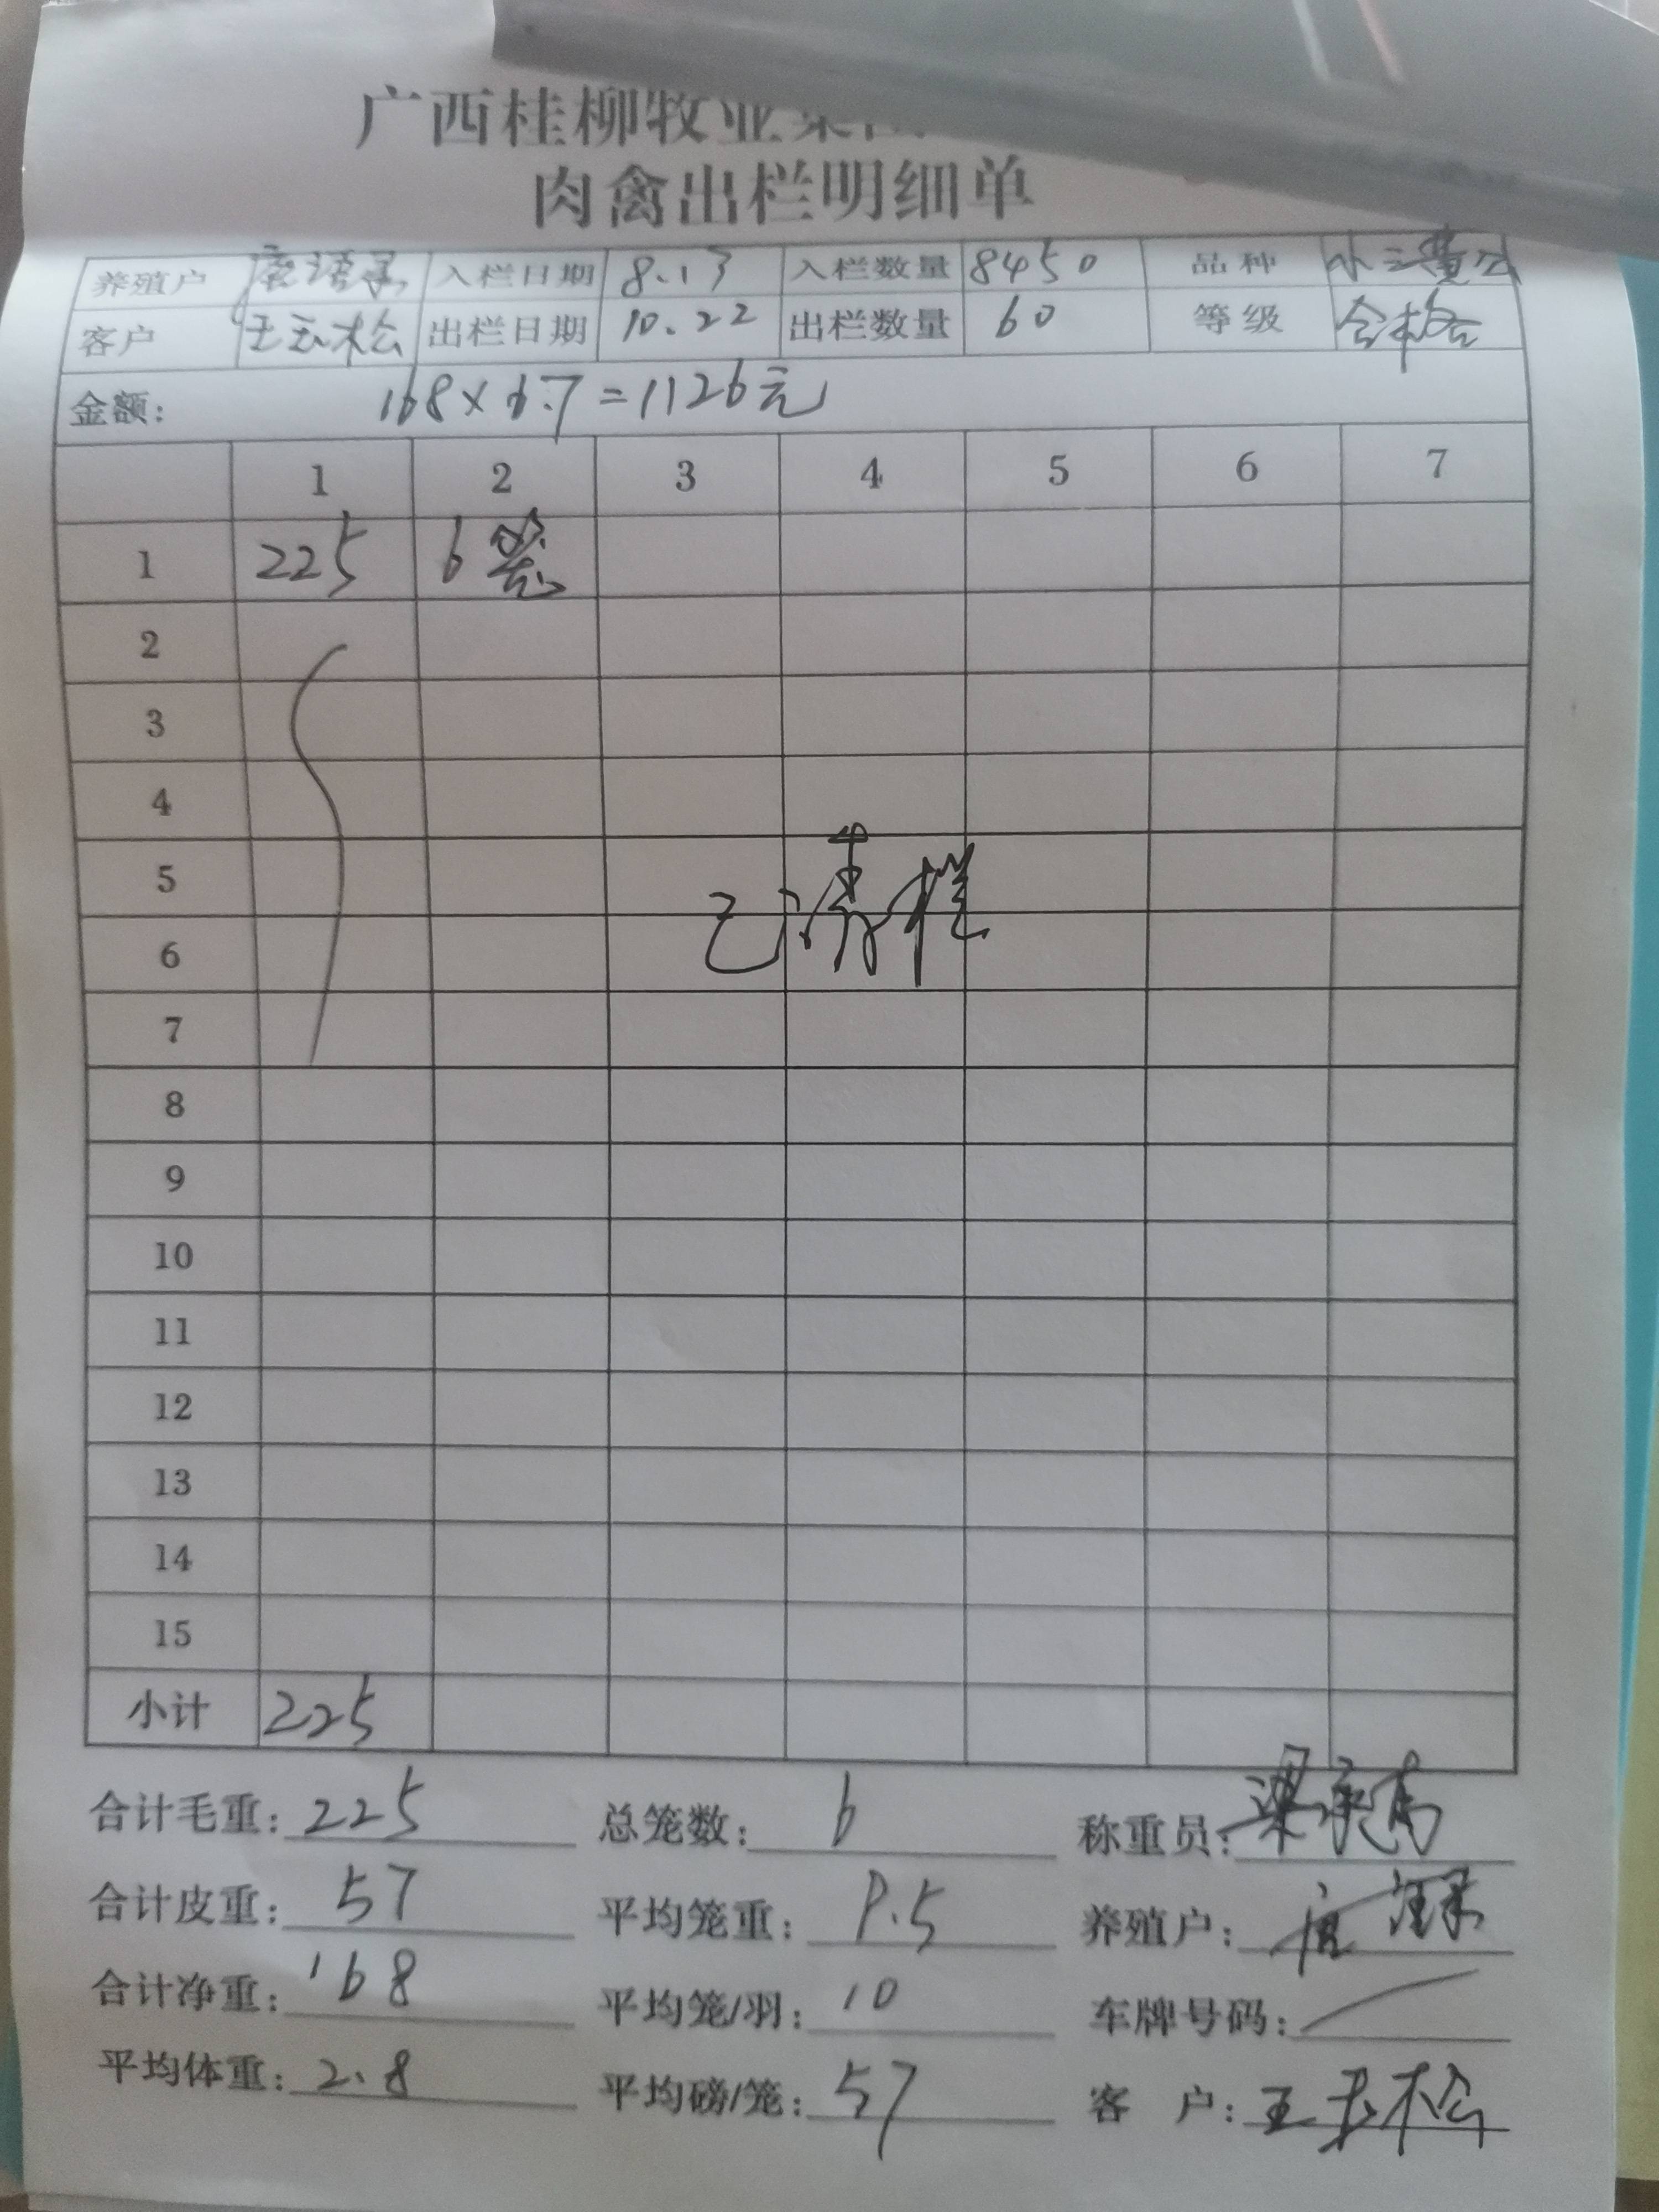 广西桂柳牧业集
肉禽出栏明细单
养殖户 入栏日期 8.17 入栏数量 8450 品种
客户 王玉松 出栏日期 10.22 出栏数量 60 等级 合格
金额: 168×6.7=1126元
1 2 3 4 5 6 7
1 225 6笼
2
3
4
5
6
7
8
9
10
11
12
13
14
15
小计 225
合计毛重: 225 总笼数: 6 称重员:
合计皮重: 57 平均笼重: 9.5 养殖户:
合计净重: 168 平均笼/羽: 10 车牌号码:
平均体重: 2.8 平均磅/笼: 57 客 户: 王玉松